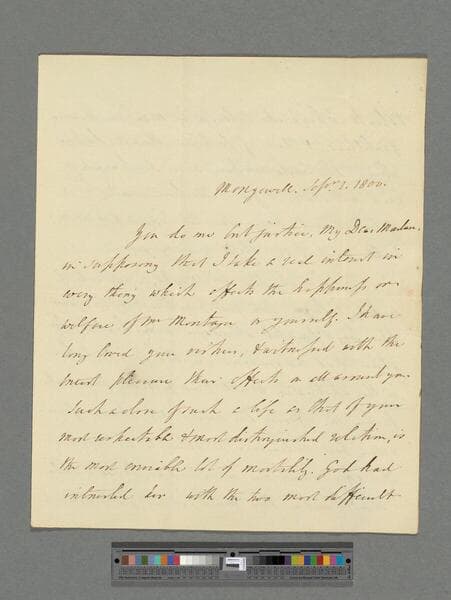 Mongewell. Sepr. 1. 1800.
You do me but justice, My Dear Madam,
in supposing that I take a real interest in
every thing which affects the happiness or
welfare of Mr Montagu or yourself. I have
long loved your virtues, & witnessed with the
truest pleasure their effects on all around you.
Such a close of such a life as that of your
most respectable & most distinguished relation, is
the most enviable lot of mortality. God had
intrusted her with the two most difficult